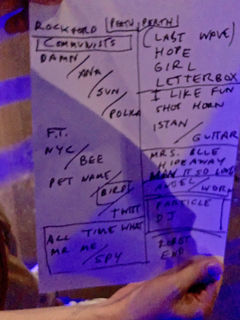 ROCKFORD
COMMUNISTS
DAMN /
ANA /
SUN /
POLKA
F.T.
NYC /
BEE
PET NAME /
BIRD /
TWIST
ALL TIME WHAT
MR ME /
SPY
PERTH
(LAST WAVE)
HOPE
GIRL
LETTERBOX
I LIKE FUN
SHOE HORN
ISTAN /
GUITAR
MRS. BLUE
HIDEAWAY
MAN IT SO LOUD
ANGEL / WORM
PARTICLE
DJ
ROBOT
END